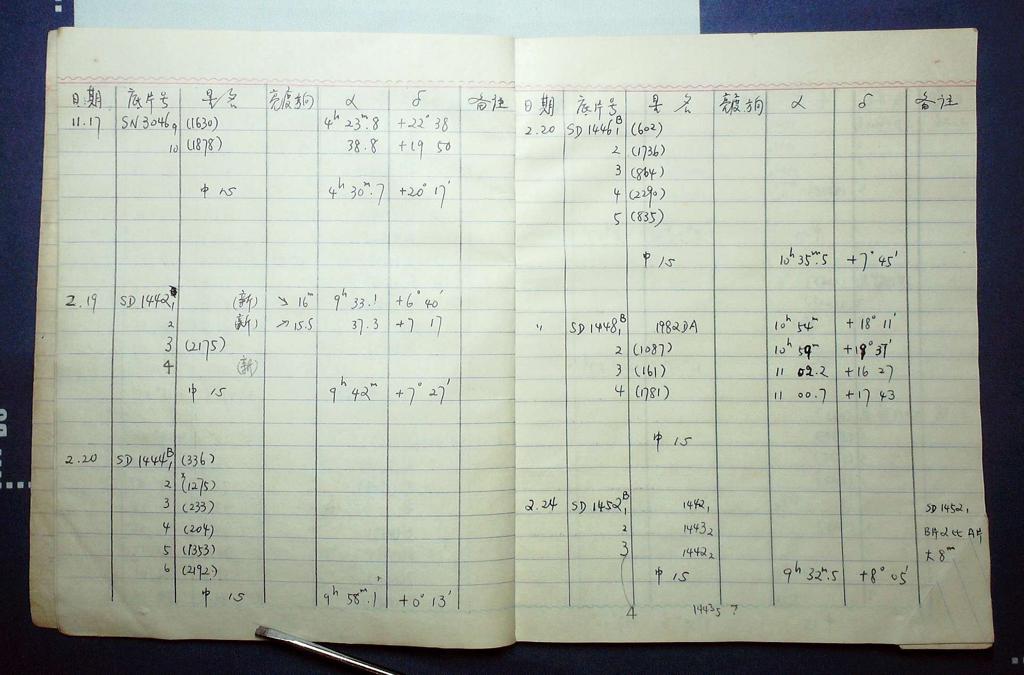 日期 底片号 星名 亮度 α δ 备注
11.17 SN3046₉ (1630) 4ʰ 23ᵐ.8 +22° 38
10 (1878) 38.8 +19 50
中心 4ʰ 30ᵐ.7 +20° 17′
2.19 SD1442₁ (新) ↘ 16ᵐ 9ʰ 33.1 +6° 40′
2 (新) ↗ 15.5 37.3 +7 17
3 (2175)
4 (新)
中心 9ʰ 42ᵐ +7° 27′
2.20 SD1444ᴮ₁ (336)
2 (1275)
3 (233)
4 (204)
5 (1353)
6 (2192)
中心 9ʰ 58ᵐ.1 +0° 13′
日期 底片号 星名 亮度 α δ 备注
2.20 SD1446ᴮ₁ (602)
2 (1736)
3 (864)
4 (2290)
5 (835)
中心 10ʰ 35ᵐ.5 +7° 45′
〃 SD1448ᴮ₁ 1982DA 10ʰ 54ᵐ +18° 11′
2 (1087) 10ʰ 59ᵐ 37′
3 (161) 11 02.2 +16 27
4 (1781) 11 00.7 +17 43
中心
2.24 SD1452ᴮ₁ 1442₁ SD1452₁
2 1443₂ B片 A片
3 1442₂ 大8ᵐ
中心 9ʰ 32ᵐ.5 +8° 05′
4 1443₅ ?